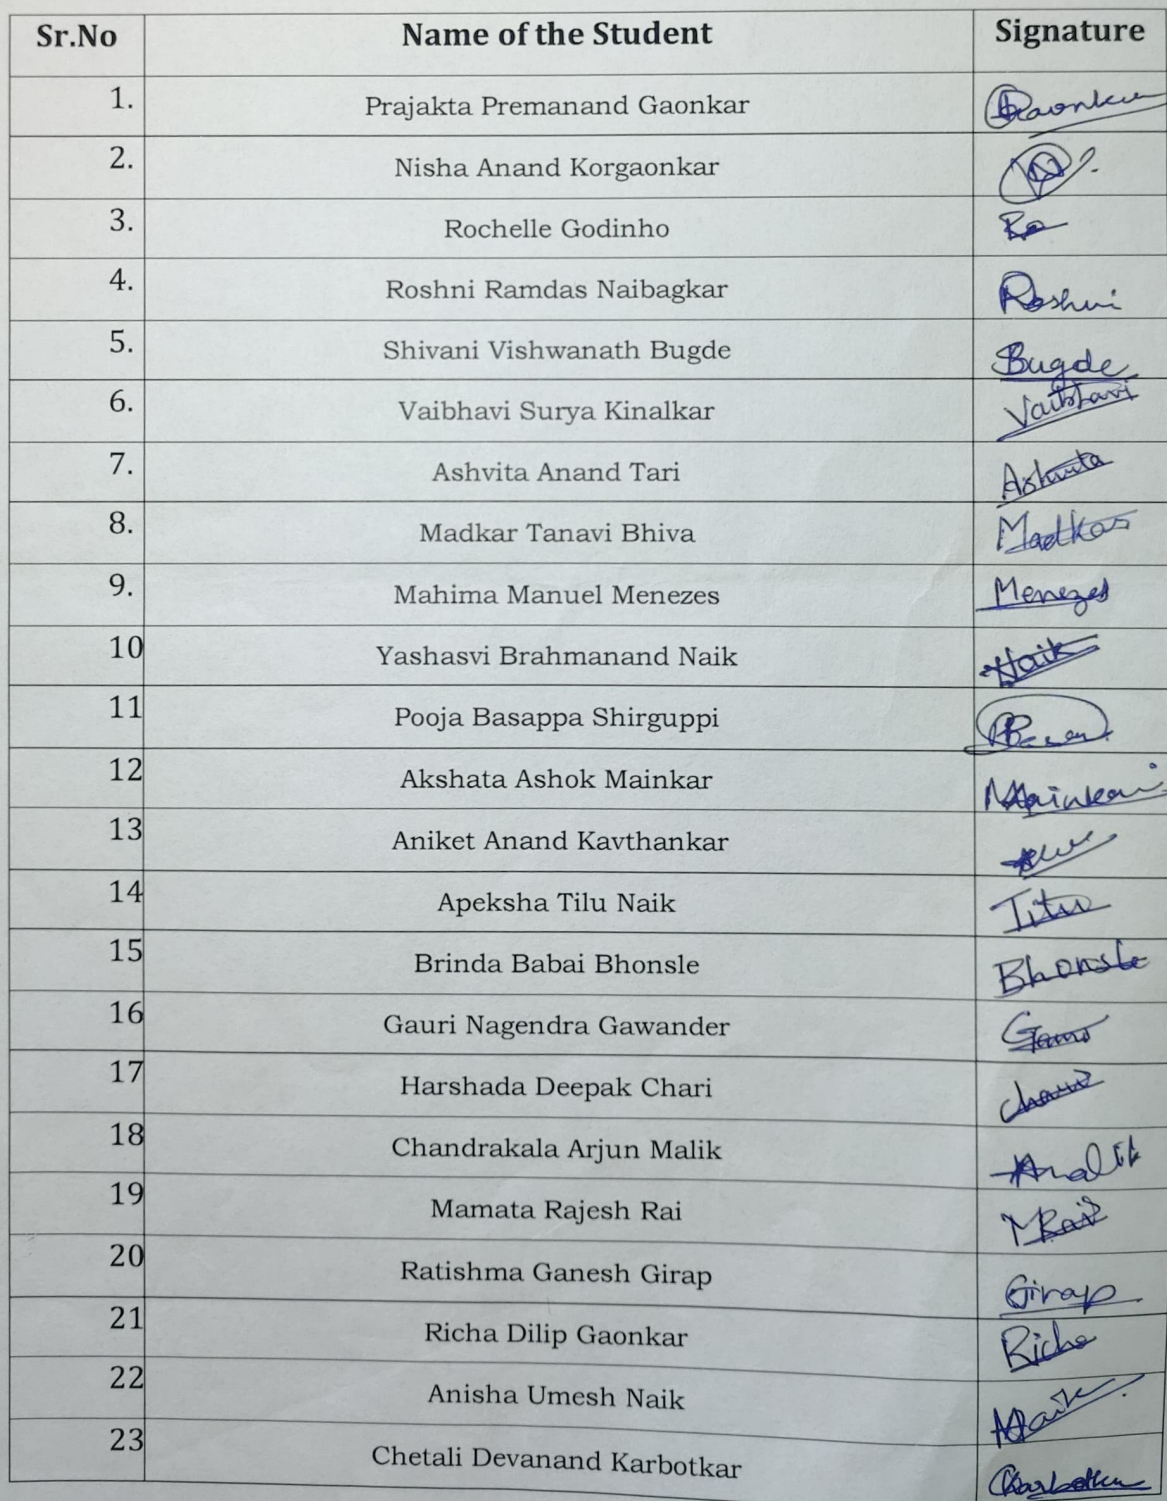 Sr.No Name of the Student Signature
1. Prajakta Premanand Gaonkar Gaonkar
2. Nisha Anand Korgaonkar
3. Rochelle Godinho
4. Roshni Ramdas Naibagkar Roshni
5. Shivani Vishwanath Bugde Bugde
6. Vaibhavi Surya Kinalkar Vaibhavi
7. Ashvita Anand Tari Ashvita
8. Madkar Tanavi Bhiva Madkar
9. Mahima Manuel Menezes Menezes
10 Yashasvi Brahmanand Naik Naik
11 Pooja Basappa Shirguppi
12 Akshata Ashok Mainkar Mainkar
13 Aniket Anand Kavthankar
14 Apeksha Tilu Naik
15 Brinda Babai Bhonsle Bhonsle
16 Gauri Nagendra Gawander
17 Harshada Deepak Chari Chari
18 Chandrakala Arjun Malik
19 Mamata Rajesh Rai MRai
20 Ratishma Ganesh Girap Girap
21 Richa Dilip Gaonkar Richa
22 Anisha Umesh Naik Naik
23 Chetali Devanand Karbotkar Karbotkar